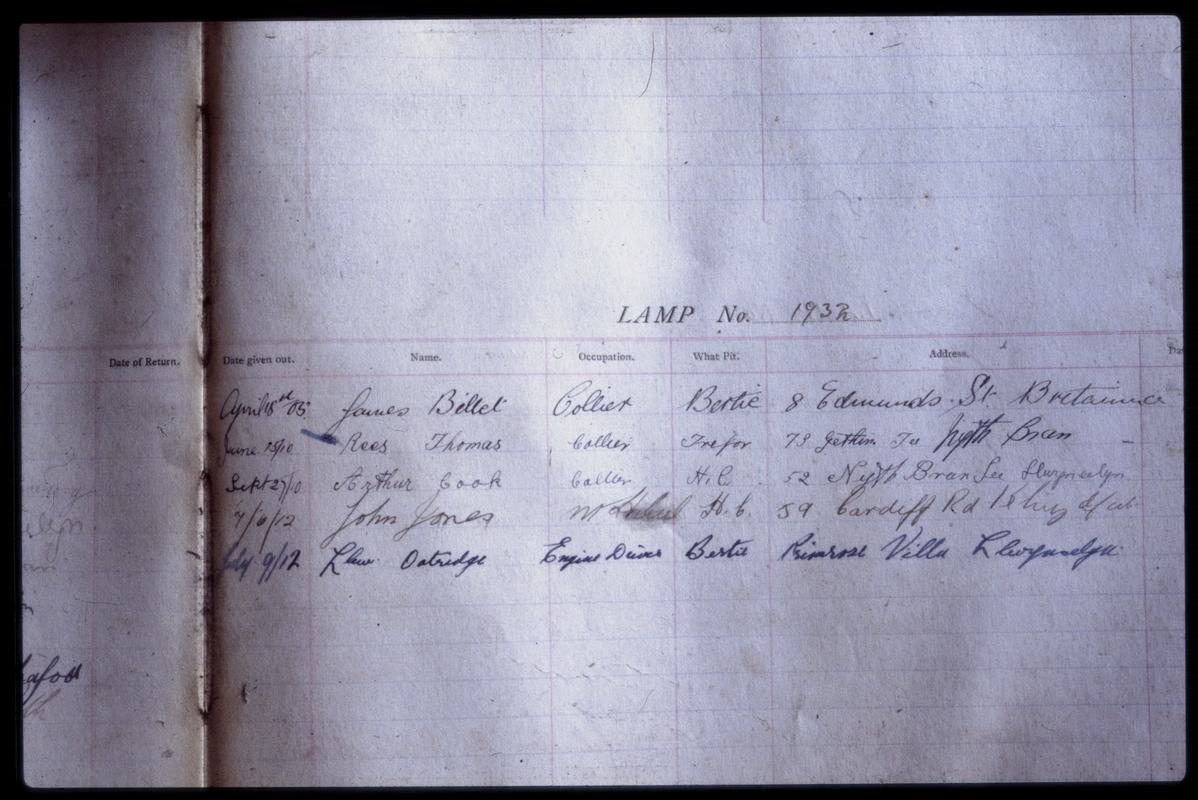 LAMP No. 1932
Date of Return. Date given out. Name. Occupation. What Pit. Address. Da
April 18 05 James Billet Collier Bertie 8 Edmunds St Britannia
June 15/10 Rees Thomas Collier Trefor 73 Gethin Nyth Bran
Sept 27/10 Arthur Cook Collier H.C. 52 Nyth Bran Llwyncelyn
7/6/12 John Jones H.C. 59 Cardiff Rd
July 9/12 Llew Oatridge Engine Driver Bertie Primrose Villa Llwyncelyn
afod